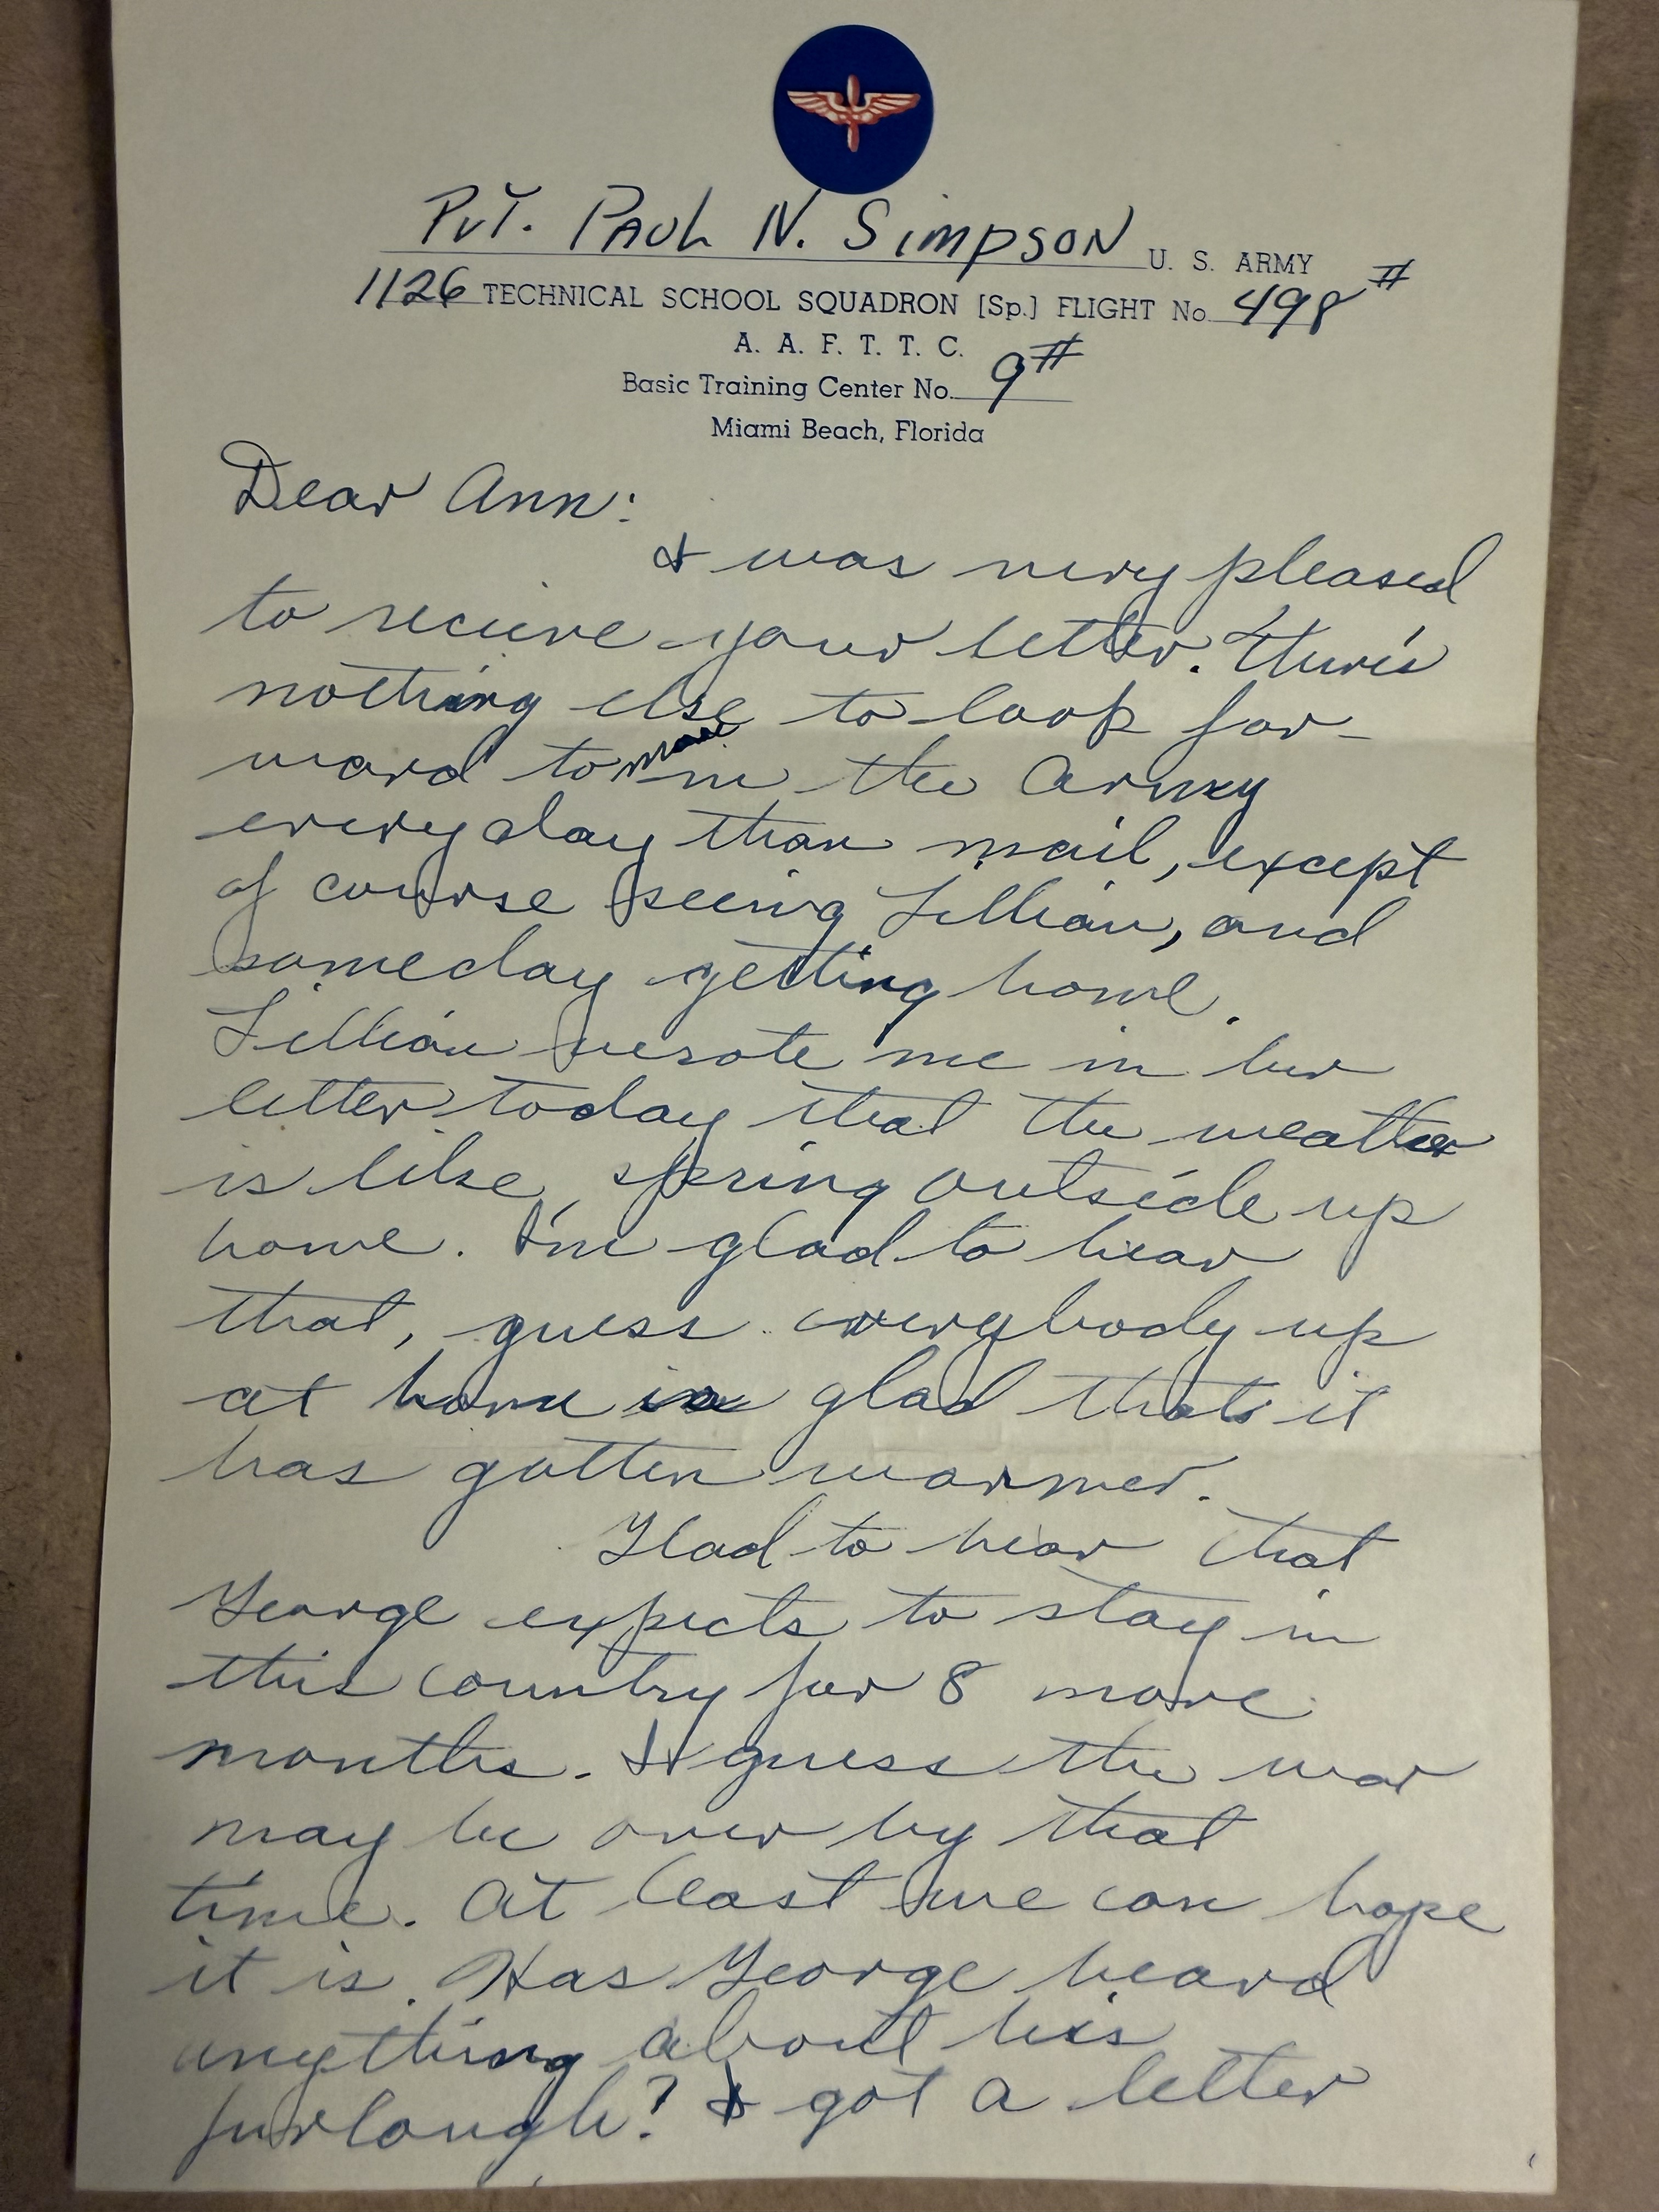 Pvt. Paul N. Simpson U. S. ARMY
1126 TECHNICAL SCHOOL SQUADRON [Sp.] FLIGHT No. 498 #
A. A. F. T. T. C.
Basic Training Center No. 9 #
Miami Beach, Florida
Dear Ann:
I was very pleased
to recieve your letter. There's
nothing else to look for-
ward to more in the Army
everyday than mail, except
of course seeing Lillian, and
someday getting home.
Lillian wrote me in her
letter today that the weather
is like spring outside up
home. I'm glad to hear
that, guess everybody up
at home is glad that it
has gotten warmer.
Glad to hear that
George expects to stay in
this country for 8 more
months. I guess the war
may be over by that
time. At least we can hope
it is. Has George heard
anything about his
furlough? I got a letter